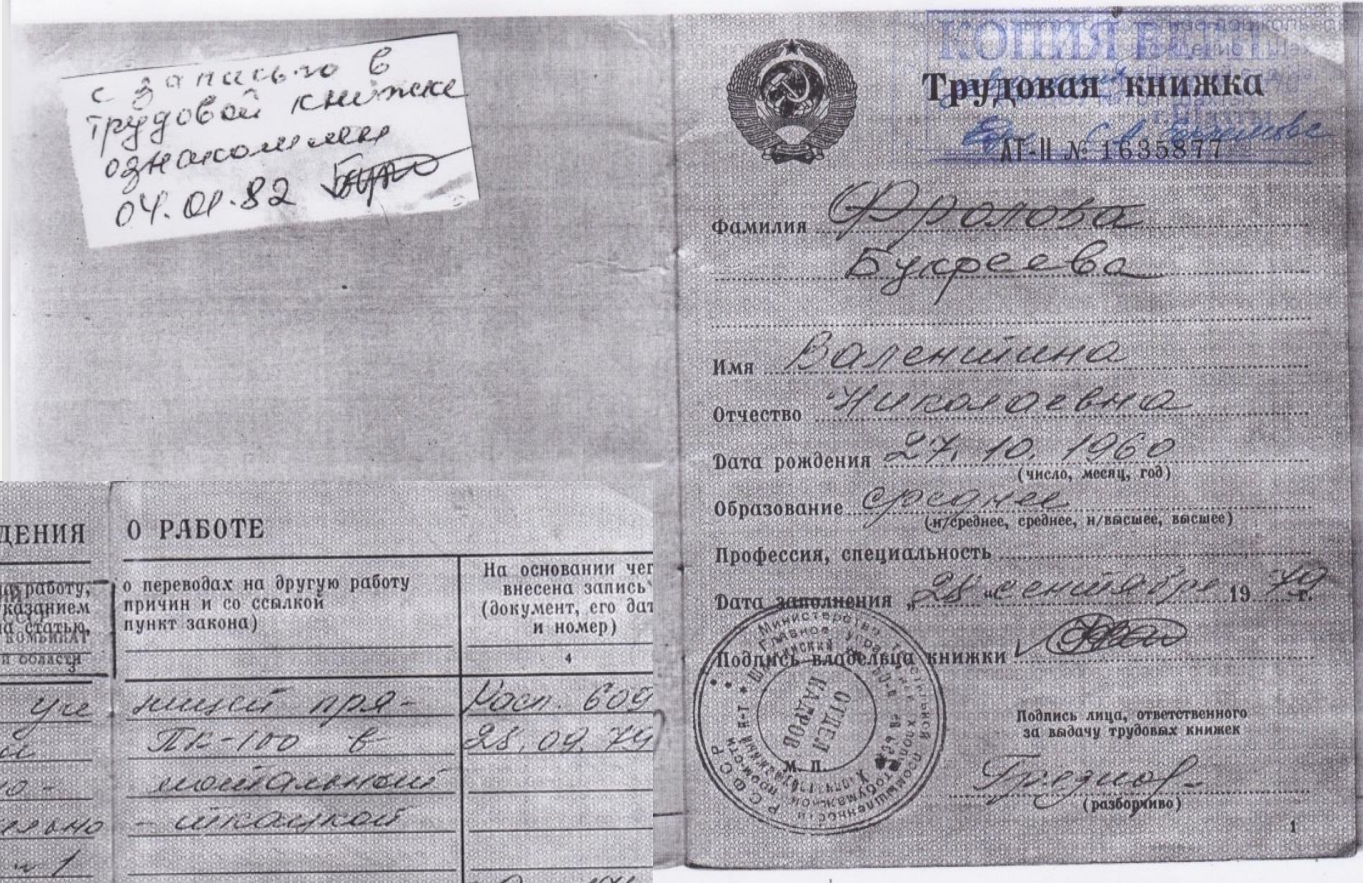 с записью в
трудовой книжке
ознакомлен
04.01.82
КОПИЯ
Трудовая книжка
АТ-II № 1635877
Фамилия Фролова
Букреева
Имя Валентина
Отчество Николаевна
Дата рождения 27. 10. 1960
(число, месяц, год)
Образование среднее
(н/среднее, среднее, н/высшее, высшее)
Профессия, специальность
Дата заполнения „28“ сентября 1979 г.
Подпись владельца книжки
ОТДЕЛ
КАДРОВ
М. П.
Подпись лица, ответственного
за выдачу трудовых книжек
(разборчиво)
1
ДЕНИЯ О РАБОТЕ
работу, о переводах на другую работу
указанием причин и со ссылкой
на статью, пункт закона)
КОМБИНАТ
и области
На основании чег
внесена запись
(документ, его дат
и номер)
3 4
уче ницей пря- Расп. 609
ПК-100 в 28.09.79
но-
ельно - ткацкой
№ 1